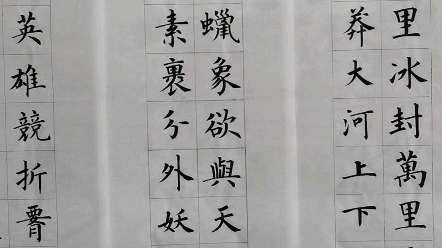 里冰封萬里
莽大河上下
蠟象欲與天
素裹分外妖
英雄競折